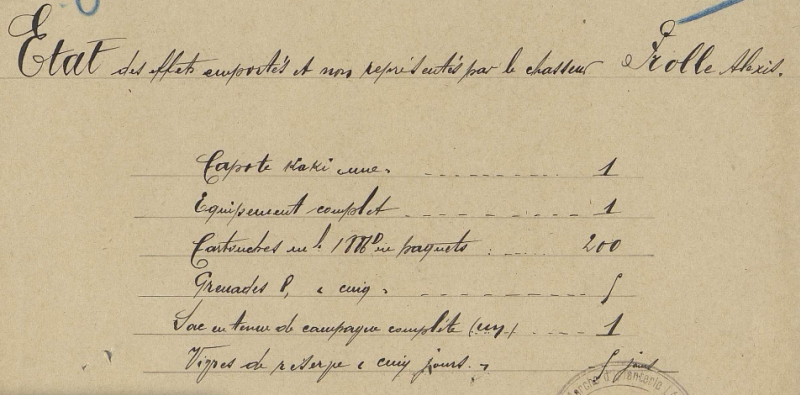 Etat des effets emportés et non représentés par le chasseur Frolle Alexis.
Capote Kaki une. 1
Equipement complet 1
Cartouches en paquets 200
Grenades cinq 5
Sac en tenue de campagne complète (un) 1
Vivres de réserve cinq jours. 5 jours
d'Infanterie